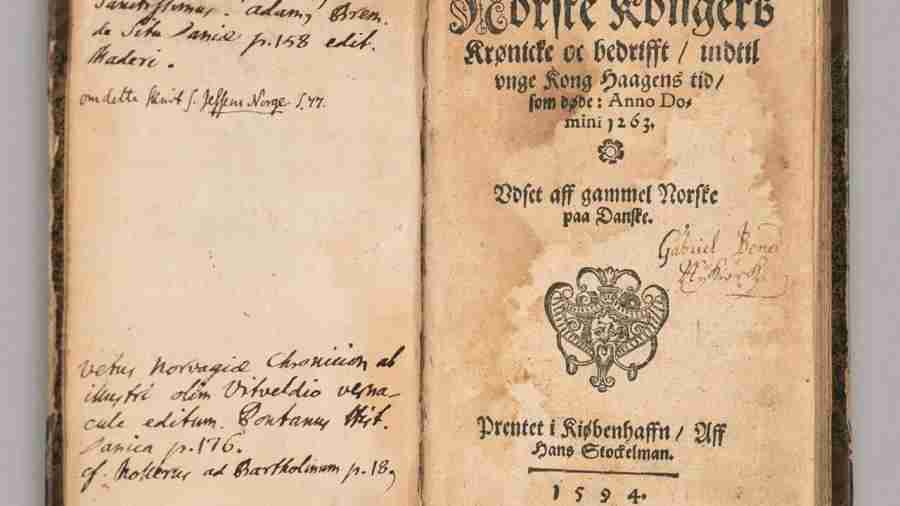 Sanctissimus. adamg Brem.
de Situ Daniæ p.158 edit.
Maderi.
om dette skrift s. Jessens Norge S.77.
vetus Norvagiæ Chronicion ab
illustri olim Vitveldio verna-
cule editum. Pontanus Hist.
Danica p.176.
cf. Mollerus ad Bartholinum p.18
Norske Kongers
Krønicke oc bedrifft / indtil
vnge Kong Haagens tid /
som døde: Anno Do-
mini 1263.
Vdset aff gammel Norske
paa Danske.
Gabriel
Prentet i Kiøbenhaffn / Aff
Hans Stockelman.
1594.